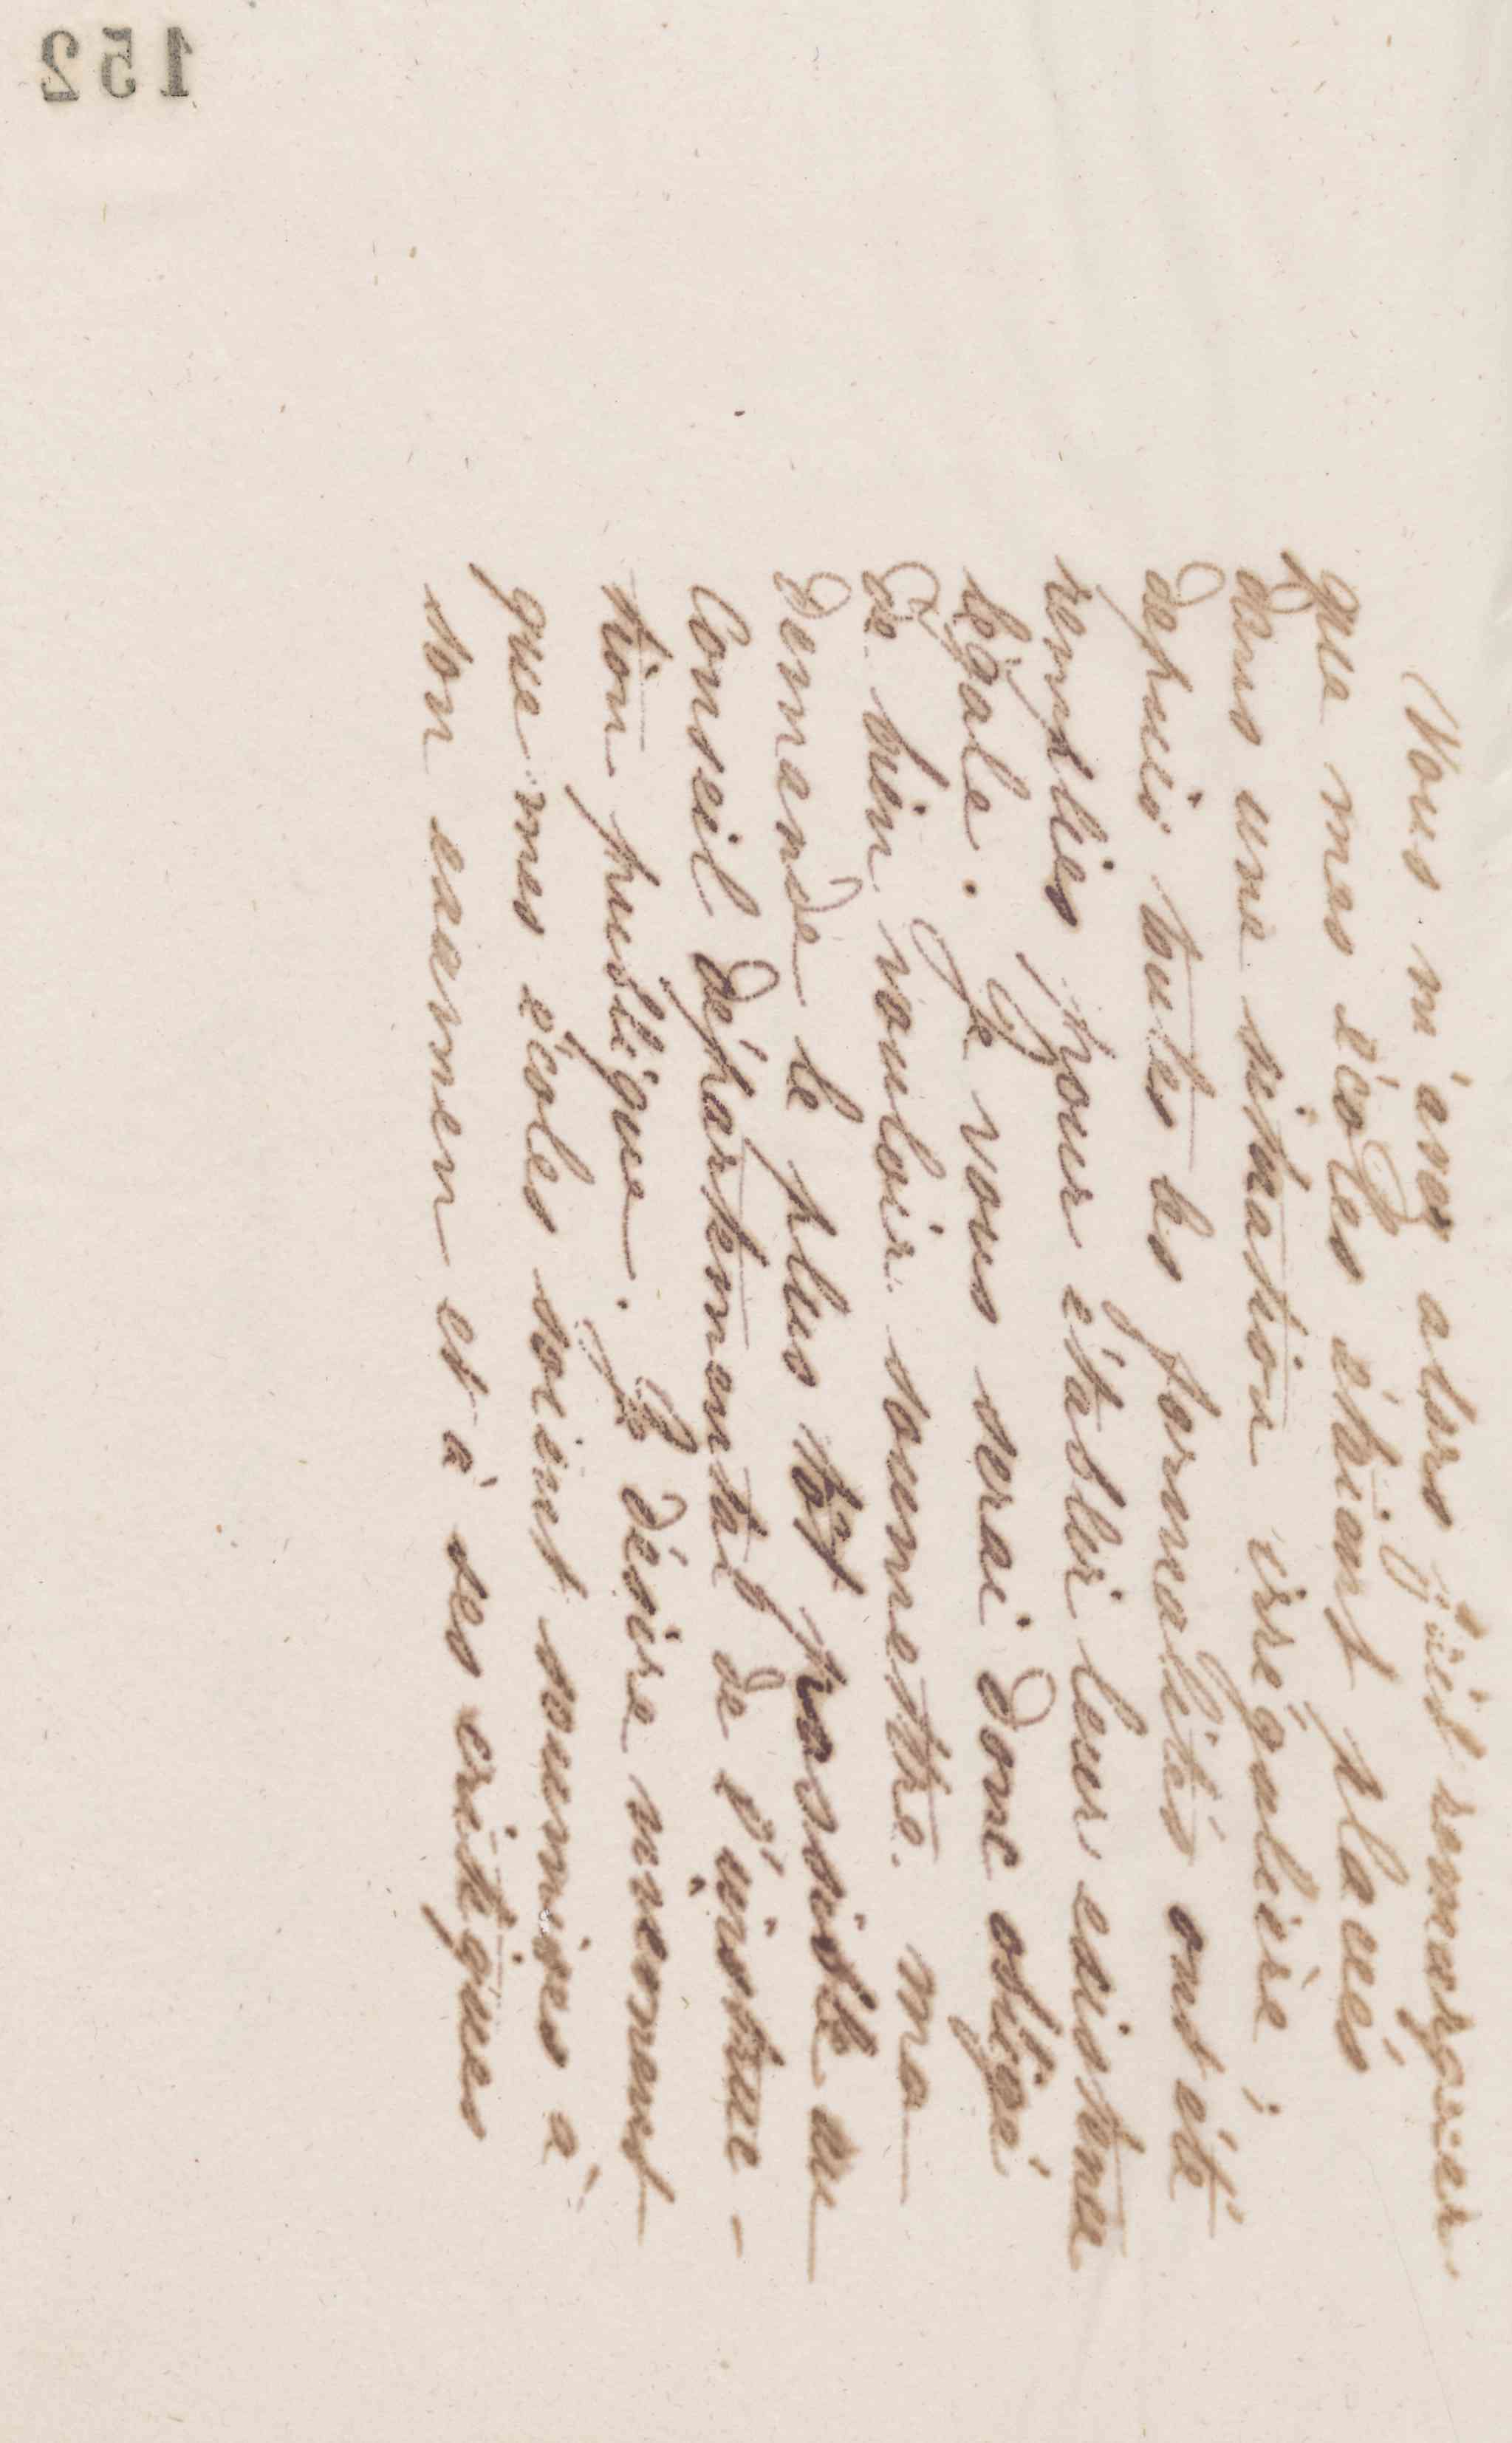 152
Vous m'avez alors fait remarquer
que mes écoles étaient placées
dans une situation irrégulière;
depuis toutes les formalités ont été
remplies pour établir leur existence
légale. Je vous serai donc obligé
de bien vouloir soumettre ma
demande le plus tôt possible au
Conseil départemental de l'instruc-
tion publique. Je désire vivement
que mes écoles soient soumises à
son examen et à ses critiques